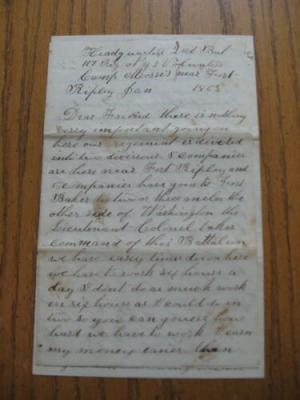 Headquarters 2nd Bat
117 Reg of N Y Volunteers
Camp Morris near Fort
Ripley Jan 1863
Dear Friend there is nothing
very important going on
here our regiment is divided
into two divisions 5 companies
are here near Fort Ripley and
5 companies have gone to Fort
Baker by two or three miles the
other side of Washington the
Lieutenant Colonel takes
command of this Battalion
we have easy times down here
we have to work six hours a
day I dont do as much work
in six hours as I could do in
two so you can guess how
hard we have to work I earn
my money easier than